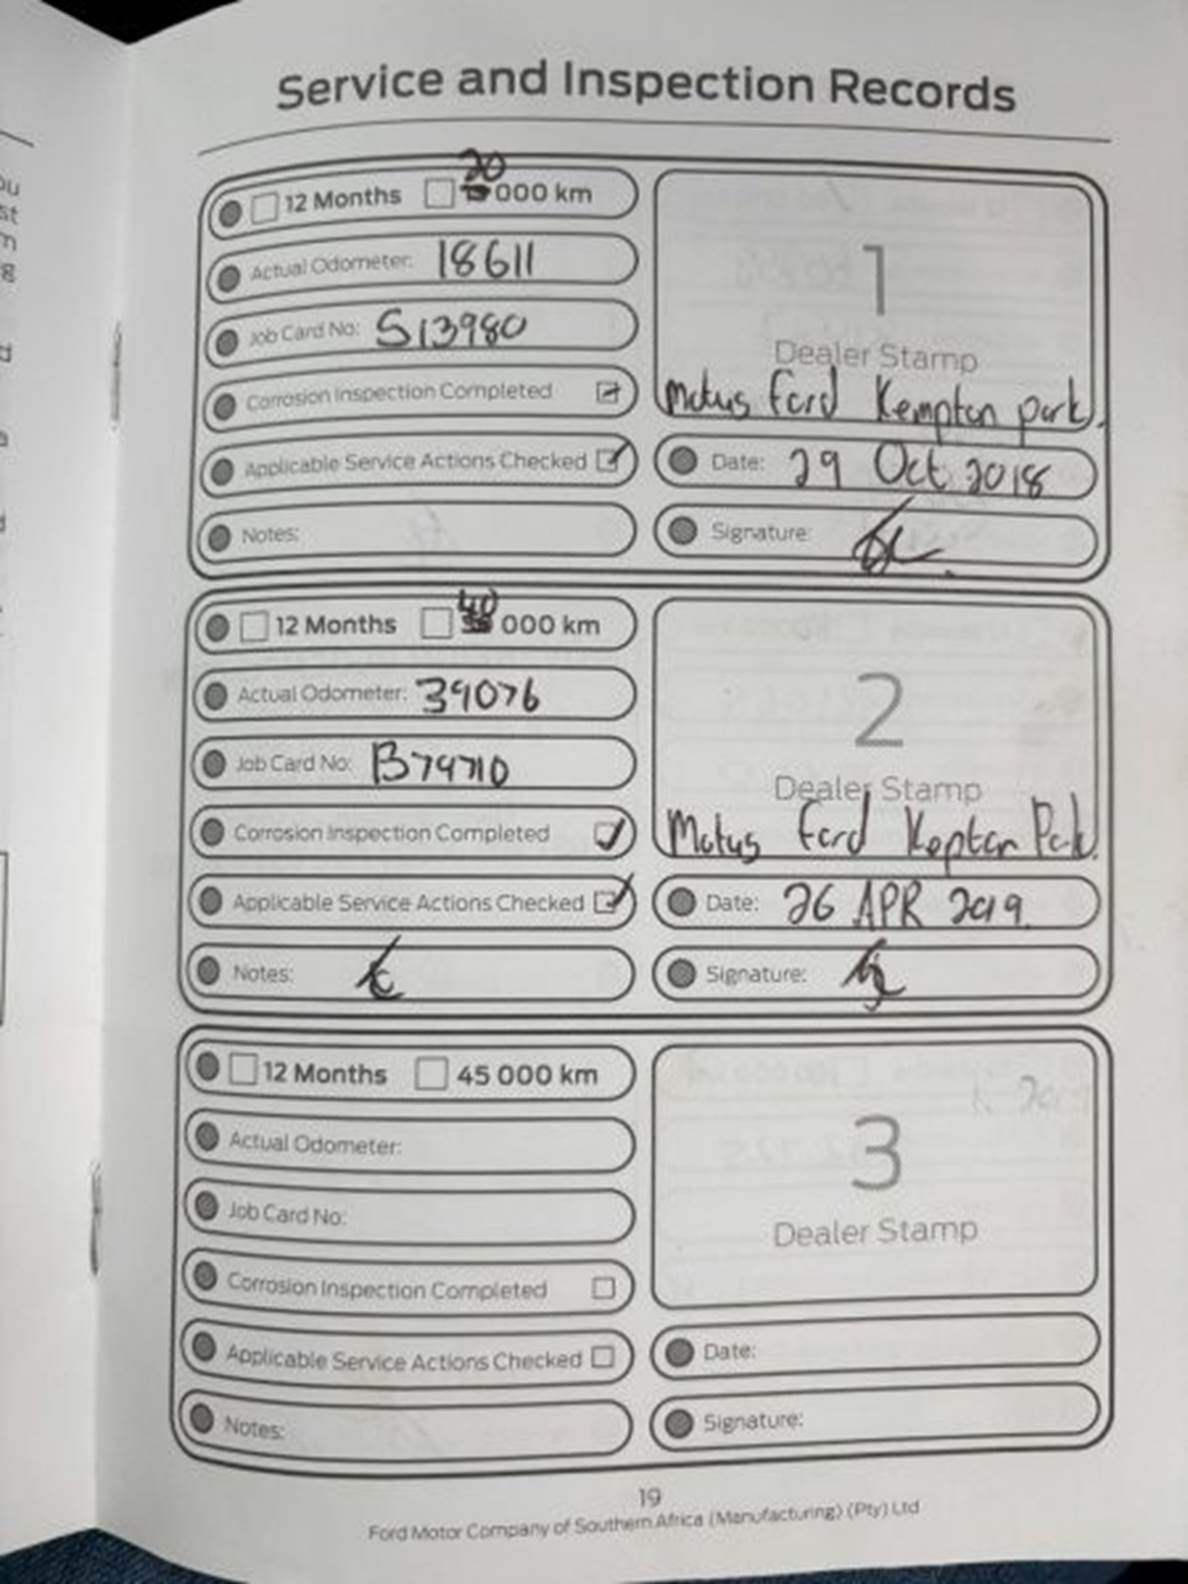 Service and Inspection Records
12 Months 20 000 km
Actual Odometer: 18611
Job Card No: S13980
Corrosion Inspection Completed
Applicable Service Actions Checked
Notes:
1
Dealer Stamp
Motus Ford Kempton park.
Date: 29 Oct 2018
Signature:
12 Months 40 000 km
Actual Odometer: 39076
Job Card No: B79710
Corrosion Inspection Completed
Applicable Service Actions Checked
Notes:
2
Dealer Stamp
Motus Ford Kepton Park.
Date: 26 APR 2019.
Signature:
12 Months 45 000 km
Actual Odometer:
Job Card No:
Corrosion Inspection Completed
Applicable Service Actions Checked
Notes:
3
Dealer Stamp
Date:
Signature:
19
Ford Motor Company of Southern Africa (Manufacturing) (Pty) Ltd